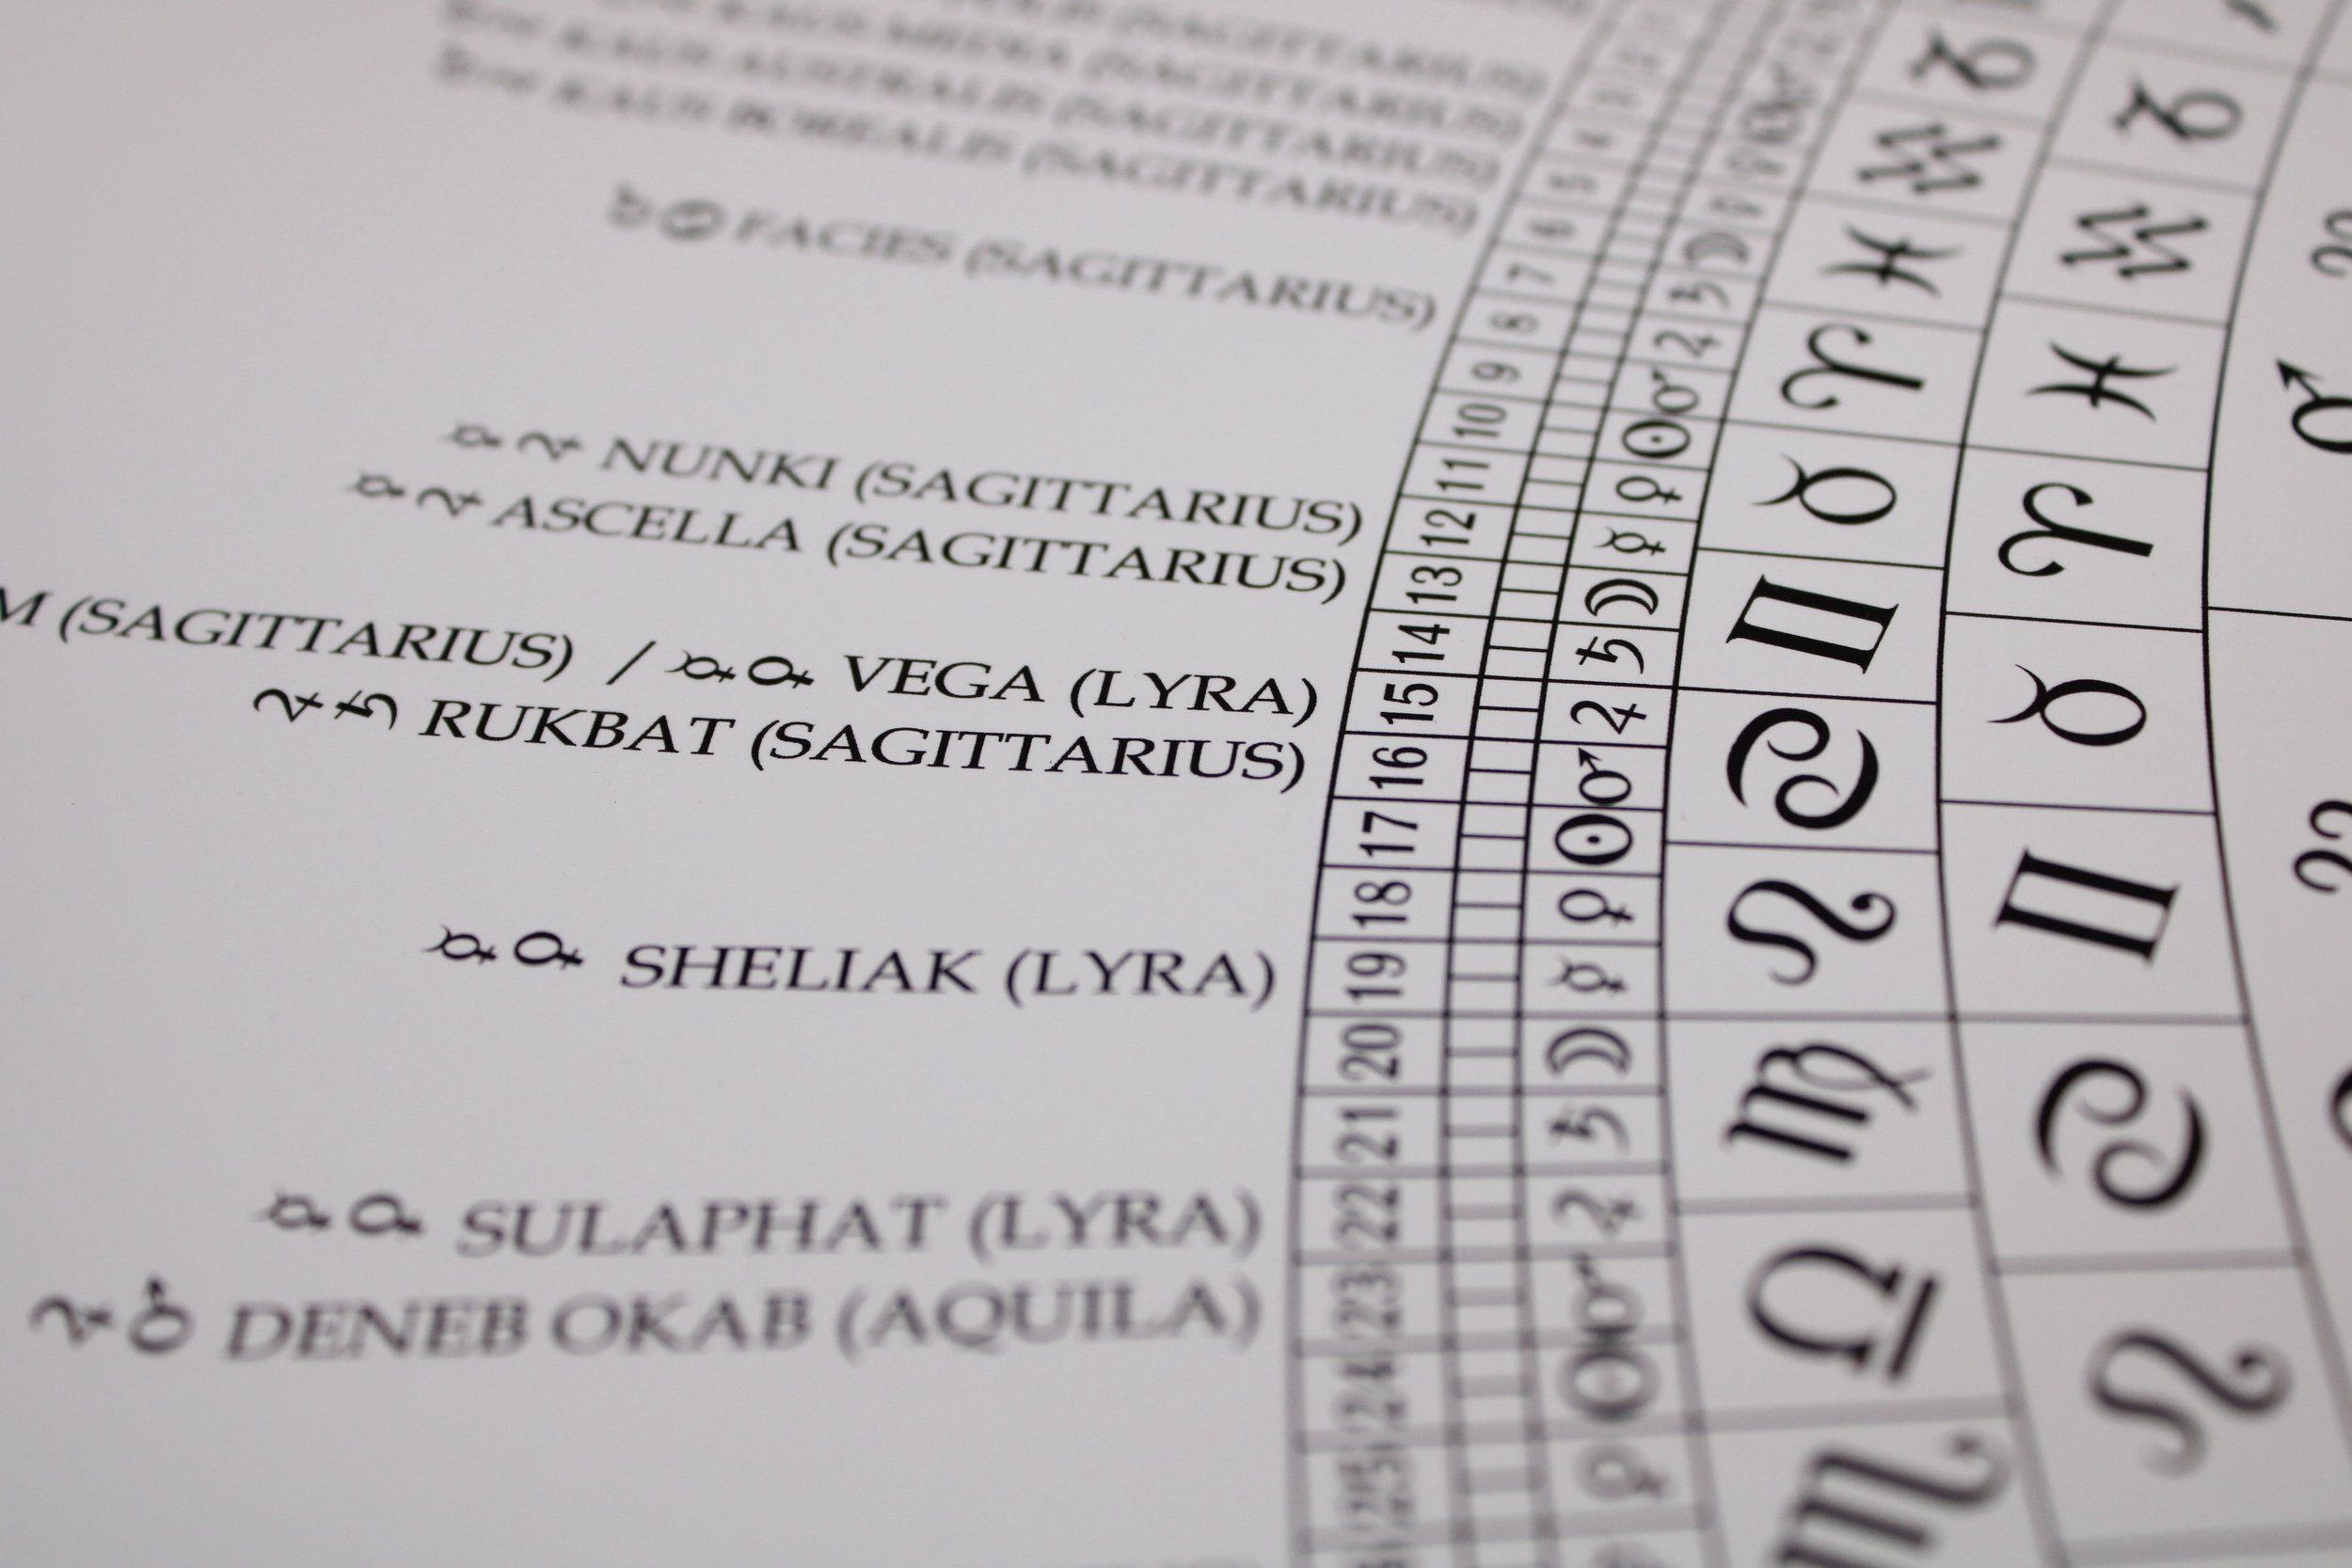 (SAGITTARIUS)
KAUS MEDIA (SAGITTARIUS)
KAUS AUSTRALIS (SAGITTARIUS)
KAUS BOREALIS (SAGITTARIUS)
♉︎ FACIES (SAGITTARIUS)
☿ ♃ NUNKI (SAGITTARIUS)
☿ ♃ ASCELLA (SAGITTARIUS)
M (SAGITTARIUS) / ☿ ♀ VEGA (LYRA)
♃ ♄ RUKBAT (SAGITTARIUS)
☿ ♀ SHELIAK (LYRA)
☿ ♀ SULAPHAT (LYRA)
♃ ♂ DENEB OKAB (AQUILA)
4
5
6
7
8
9
10
11
12
13
14
15
16
17
18
19
20
21
22
23
24
25
♄ ☽ ♄ ♃ ♂ ☉ ♀ ☿ ☽ ♄ ♃ ♂ ☉ ♀ ☿ ☽ ♄ ♃ ♂ ☉ ♀
♑ ♒ ♓ ♈ ♉ ♊ ♋ ♌ ♍ ♎ ♏
♑ ♒ ♓ ♈ ♉ ♊ ♋ ♌
♂